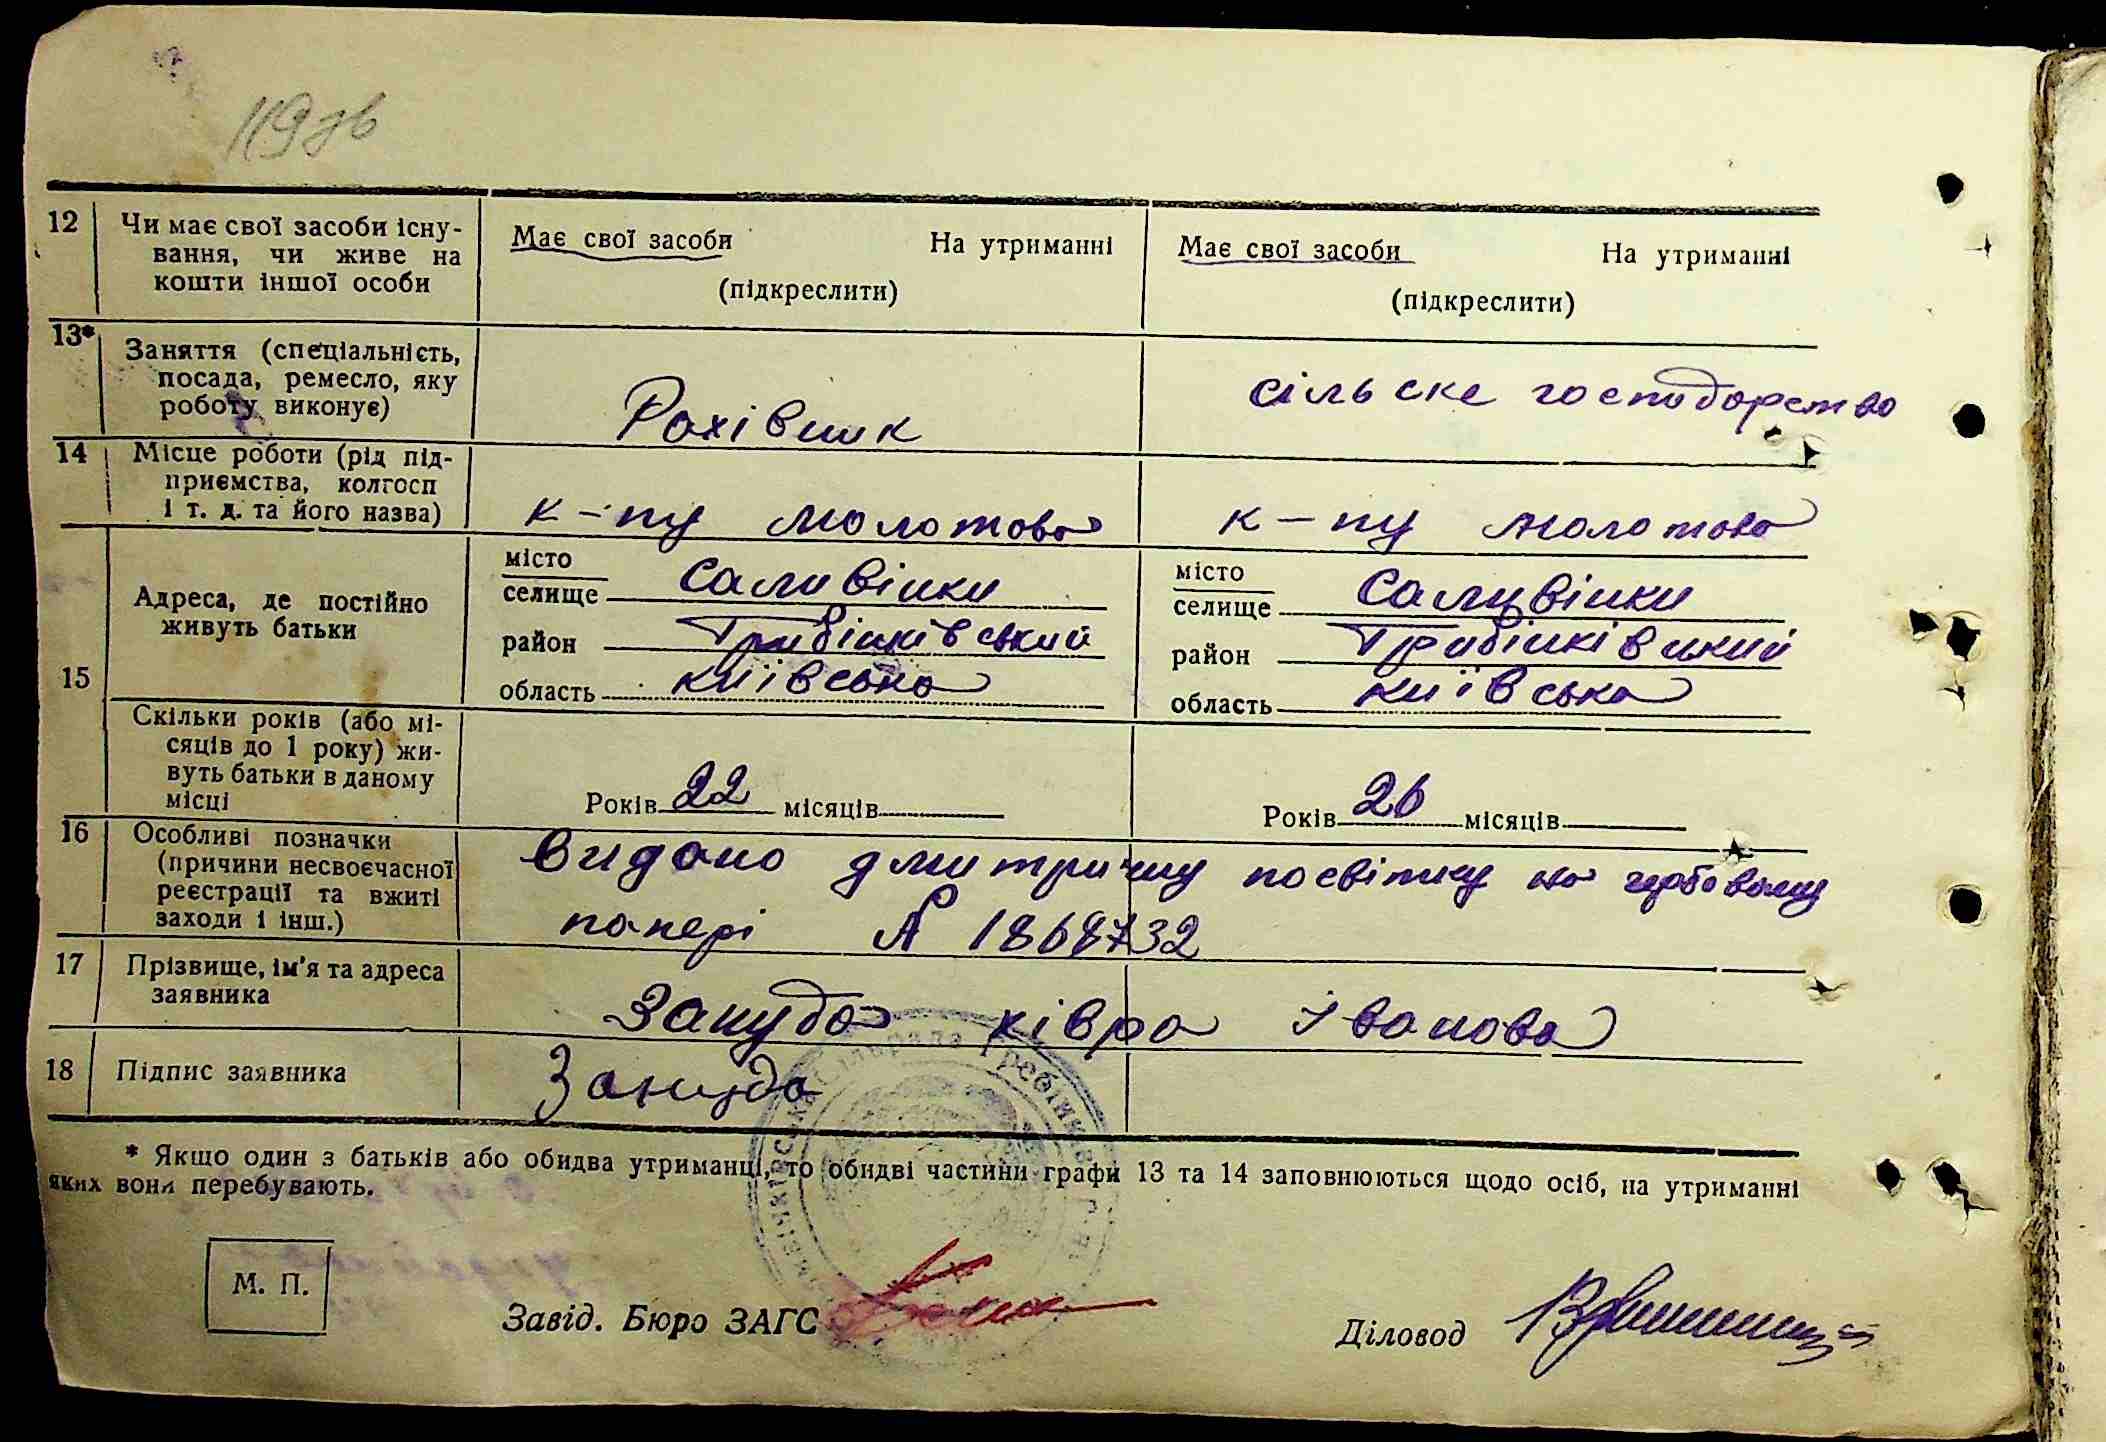 119зв
12 Чи має свої засоби існу-
вання, чи живе на
кошти іншої особи
Має свої засоби На утриманні
(підкреслити)
Має свої засоби На утриманні
(підкреслити)
13* Заняття (спеціальність,
посада, ремесло, яку
роботу виконує)
Рахівник
сільске господарство
14 Місце роботи (рід під-
приємства, колгосп
і т. д. та його назва)
к-пу Молотова
к-пу Молотова
15 Адреса, де постійно
живуть батьки
місто
селище Саливінки
район Грибінківський
область Київська
місто
селище Саливінки
район Грибінківський
область Київська
Скільки років (або мі-
сяців до 1 року) жи-
вуть батьки в даному
місці
Років 22 місяців
Років 26 місяців
16 Особливі позначки
(причини несвоєчасної
реєстрації та вжиті
заходи і інш.)
Видано посвітку на гербовому
папері № 1868732
17 Прізвище, ім'я та адреса
заявника
Зануда Хівра Іванова
18 Підпис заявника
Зануда
* Якщо один з батьків або обидва утриманці, то обидві частини графи 13 та 14 заповнюються щодо осіб, на утриманні
яких вони перебувають.
М. П.
Завід. Бюро ЗАГС
Діловод